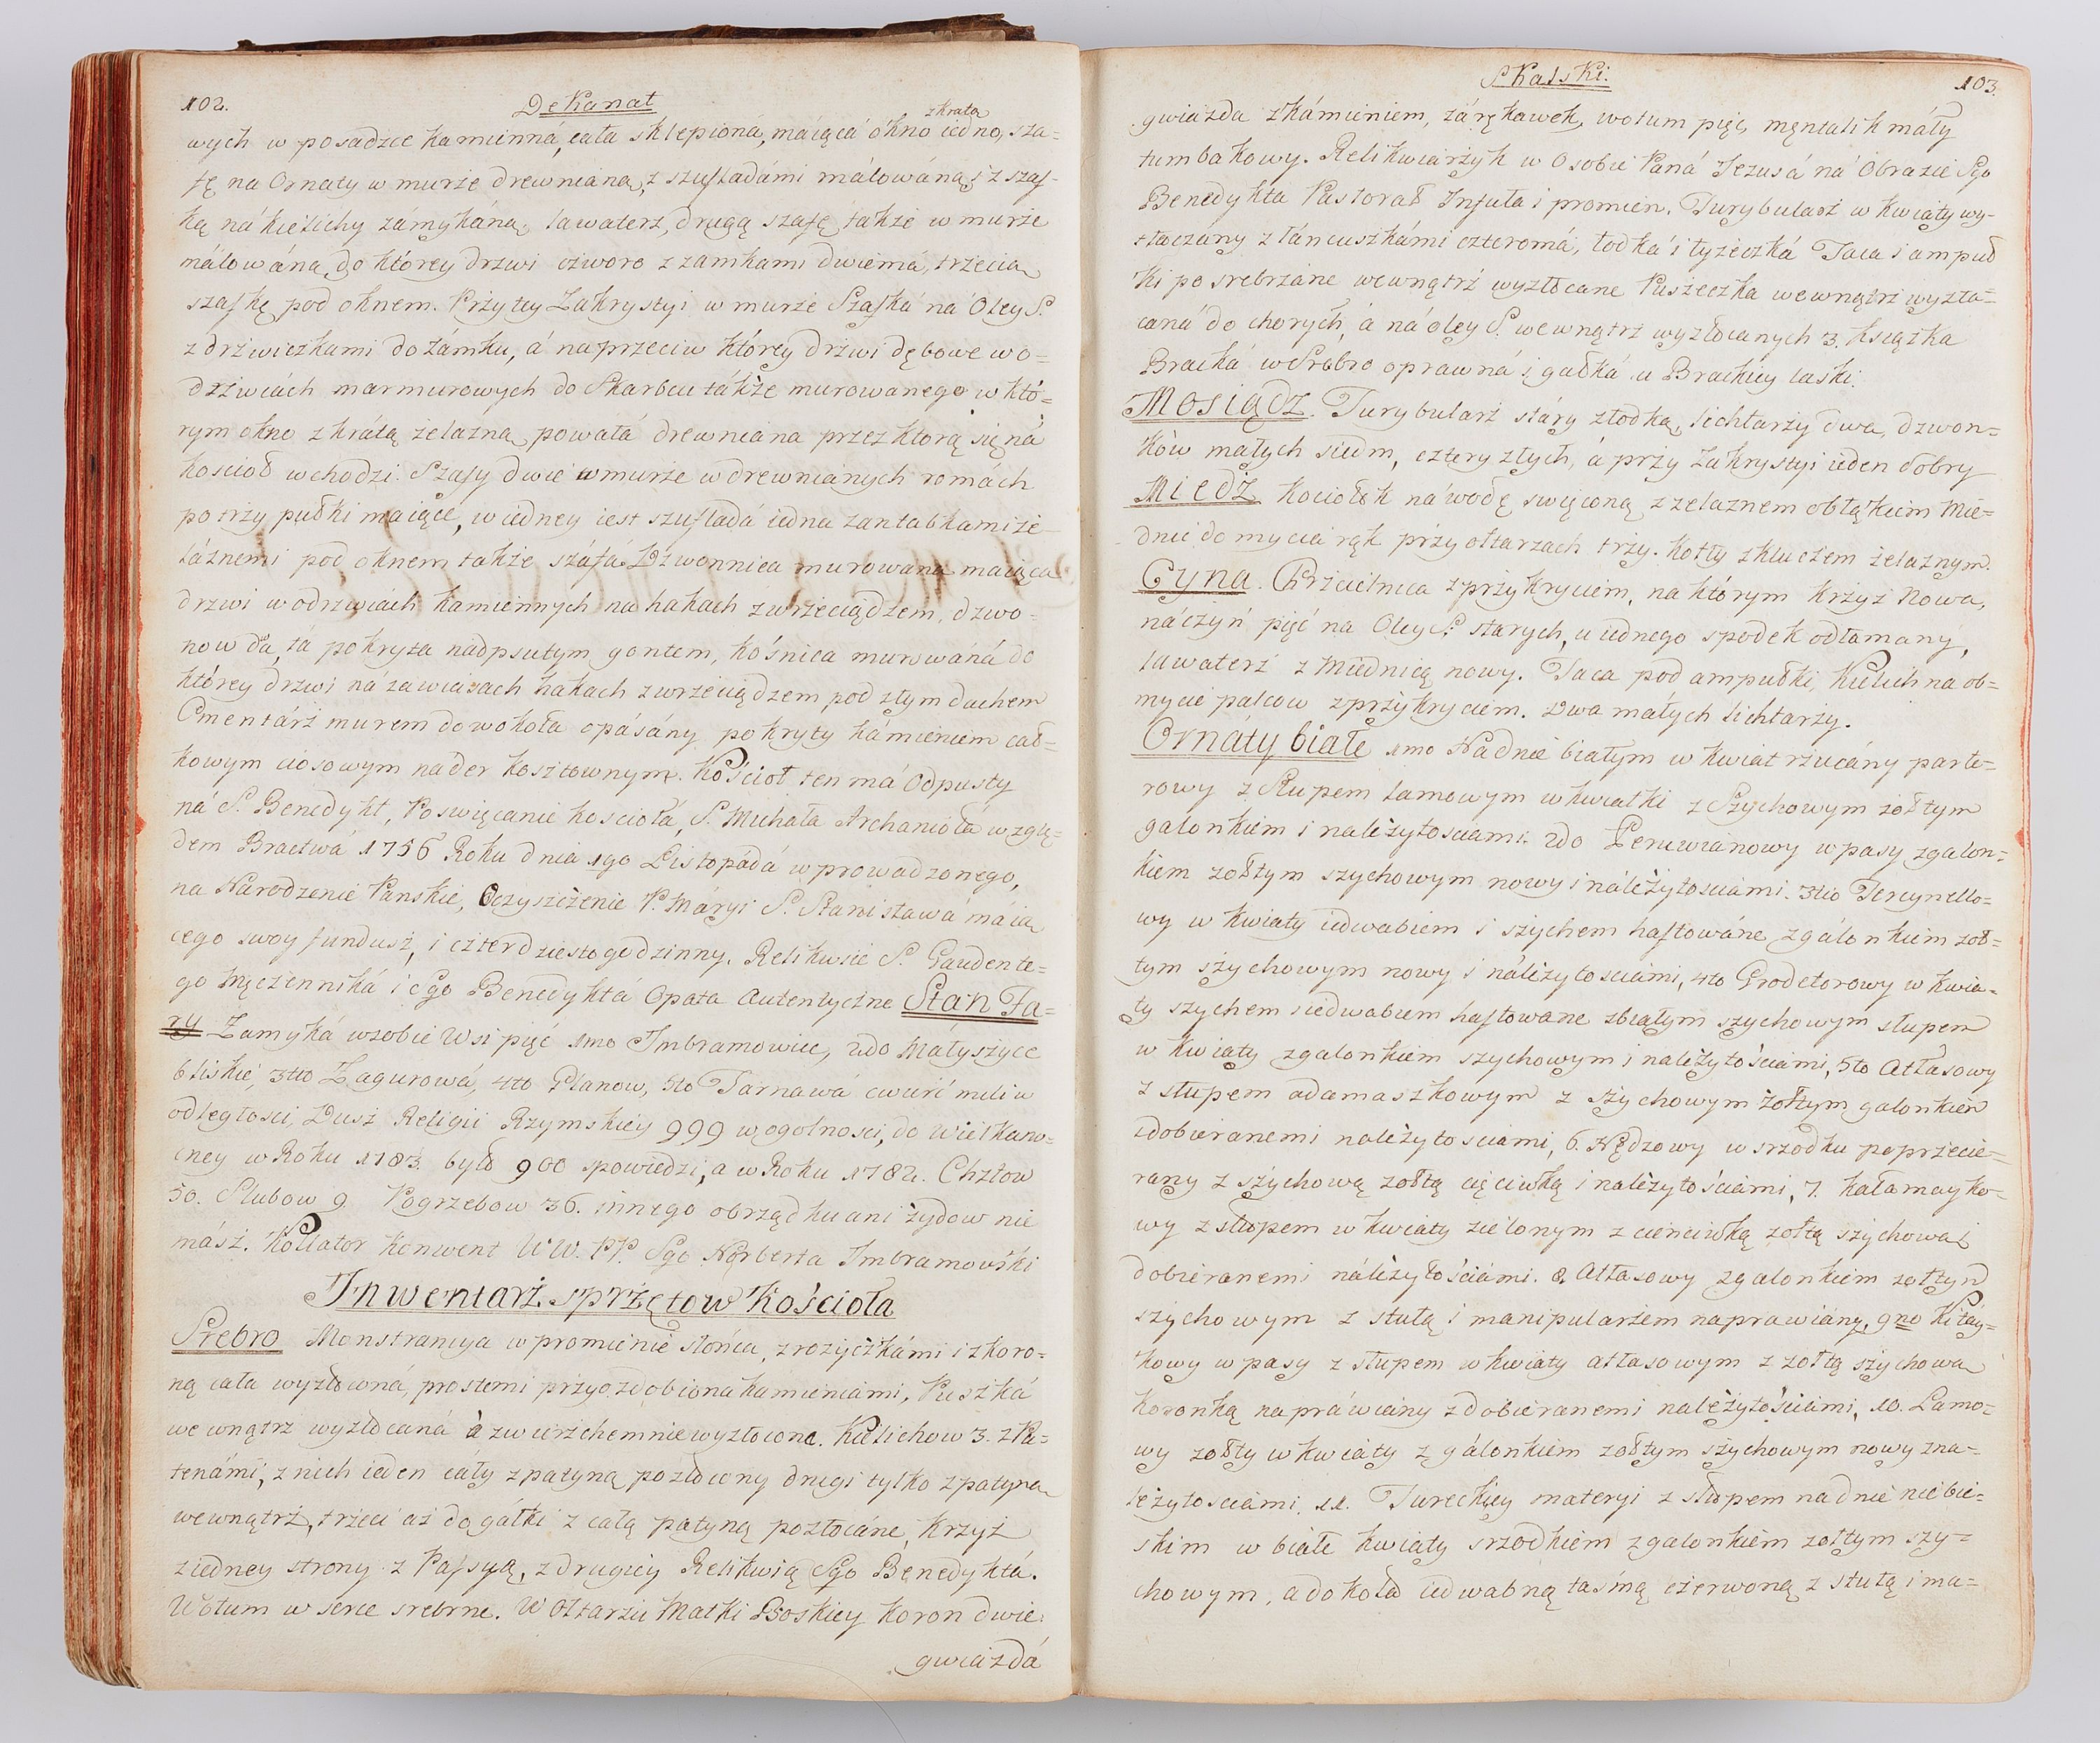 102.
Dekanat
z kratą
wych w posadzce kamienná, cała sklepioná, maiącá ókno iedno, sza=
fę na Ornaty w murże drewnianą, z szufladámi málowáną i z szaf-
ką ná kielichy zámykáną, lawaterz, drugą szafę także w murże
málowáną, do którey drzwi czworo z zamkami dwiema, trzecią
szafkę pod oknem. Przy tey Zakrystyi w murże Szafká ná Oley S.
z drzwiczkami do zámku, á naprzeciw którey drzwi dębowe w o=
drzwiách marmurowych do Skarbcu tákże murowanego w któ=
rym okno z krátą żelazną powałá drewniana przez ktorą się ná
kościoł wchodzi. Szafy dwie w murże w drewnianych romách
po trzy pułki maiące, w iedney iest szufladá iedna z antabkami że
láznemi pod oknem także száfá. Dzwonnica murowana maiąca
drzwi w odrzwiách kamiennych na hakach z wrzeciądzem, dzwo=
now da, tá pokryta nadpsutym gontem, kośnica murowáná do
którey drzwi ná zawiasach hakach z wrzeciądzem pod złym dachem
Cmentárz murem dowokoła opásány pokryty kámieniem cał=
kowym ciosowym nader kosztownym. Kościoł ten má Odpusty
ná S. Benedykt, Poswięcanie kościoła, S. Michała Archanioła wzglę=
dem Bractwá 1756 Roku dnia 1go Listopádá wprowadzonego,
na Narodzenie Panskie, Oczyszczenie P. Máryi S. Stanisława máią
cego swoy fundusz, i czterdziestogodzinny. Relikwie S. Gaudente=
go Męczenniká i Sgo Benedyktá Opata Autentyczne Stan Fa=
ry Zamyká w sobie Wsi pięć 1mo Imbramowice, 2do Małyszyce
bliskie, 3tio Zagurowá, 4to Planow, 5to Tarnawá cwierć mili w
odległości, Dusz Religii Rzymskiey 999 w ogolnosci, do Wielkano=
cney w Roku 1783. było 900 spowiedzi, a w Roku 1782. Chztow
50. Slubow 9 Pogrzebow 36. innego obrządku ani żydow nie
mász. Kollator Konwent WW. PP. Sgo Norberta Imbramowski
Inwentarz sprzętow Kościoła
Srebro Monstrancya w promienie słońca, z rożyczkámi i z koro=
ną cała wyzłocona, prostemi przyozdobiona kamieniami, Puszká
wewnątrz wyzłocaná á zwierzchem niewyzłocona. Kielichow 3. z Pa=
tenámi, z nich ieden cáły z patyną pozłocony drugi tylko z patyną
wewnątrz, trzeci aż do gáłki z całą patyną pozłocáne, Krzyż
z iedney strony z Passyą, z drugiey Relikwią Sgo Benedyktá.
Wotum w serce srebrne. W Ołtarzu Matki Boskiey koron dwie.
gwiazdá
Skalski.
103.
gwiazda z kámieniem, zárękawek, wotum pięć, mentalik máły
tumbakowy. Relikwiarzyk w Osobie Paná Jezusá ná Obrazie Sgo
Benedykta Pastorał Infuła i promien. Turybularz w kwiaty wy-
tłoczány z łáncuszkámi czteromá, łodka i łyżeczká Taca i ampuł
ki posrebrzáne wewnątrz wyzłocane Puszeczka wewnątrz wyzła=
caná do chorych, á ná oley S. wewnątrz wyzłocanych 3. Książka
Bracká w Srebro oprawná i gałká u Brackiey laski.
Mosiądz. Turybularz stáry z łodką, lichtarzy dwa, dzwon=
ków małych siedm, cztery złych, á przy Zakrystyi ieden dobry
Miedź Kociołek ná wodę święconą z zelaznem obłąkiem Mie=
dnic do mycia rąk przy ołtarzach trzy. Kotły z kluczem żelaznym.
Cyna. Chrzcielnica z przykryciem, na którym krzyż Nowa,
náczyń pięć na Oley S. starych, u iednego spodek odłamany,
lawaterz z Miednicą nowy. Taca pod ampułki, Kielich na ob=
mycie palcow z przykryciem. Dwa máłych lichtarzy.
Ornáty białe 1mo Na dnie białym w kwiat rzucány parte=
rowy z Słupem lamowym w kwiatki z Szychowym żołtym
galonkiem i należytosciami. 2do Peruwianowy w pasy z galon=
kiem żołtym szychowym nowy i náleżytosciámi. 3tio Tercynello=
wy w kwiaty iedwabiem i szychem haftowáne z gálonkiem żoł=
tym szychowym nowy i náleżytosciámi, 4to Grodetorowy w kwia=
ty szychem iedwabiem haftowane z białym szychowym słupem
w kwiaty z galonkiem szychowym i należytościami, 5to Atłasowy
z słupem adamaszkowym z szychowym żołtym galonkiem
i dobieranemi należytosciami, 6. Nędzowy w srzodku poprzecie=
rany z szychową żołtą cięciwką i należytościami, 7. kałamayko=
wy z słupem w kwiaty zielonym z cienciwką żołtą szychową i
dobieranemi náleżytościámi. 8. Atłasowy z galonkiem żołtym
szychowym z stułą i manipularzem naprawiány, 9no Kitáy=
kowy w pasy z słupem w kwiaty atłasowym z żołtą szychową
koronką napráwiany z dobieranemi należytościami, 10. Lamo=
wy żołty w kwiaty z gálonkiem żołtym szychowym nowy z na=
leżytosciami. 11. Tureckiey materyi z słupem na dnie niebie=
skim w białe kwiaty srzodkiem z galonkiem żołtym szy=
chowym, a dokoła iedwabną tasmą czerwoną z stułą i ma=